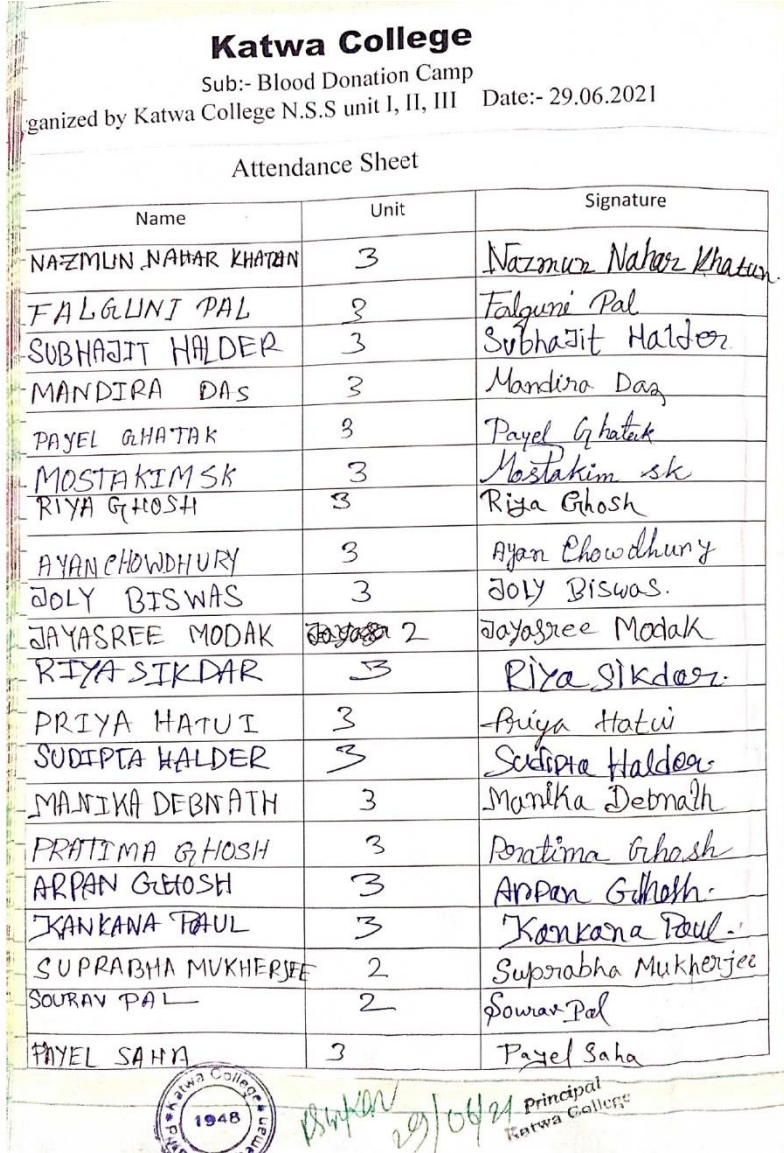 Katwa College
Sub:- Blood Donation Camp
ganized by Katwa College N.S.S unit I, II, III Date:- 29.06.2021
Attendance Sheet
Name Unit Signature
NAZMUN NAHAR KHATUN 3 Nazmun Nahar Khatun.
FALGUNI PAL 3 Falguni Pal
SUBHAJIT HALDER 3 SubhaJit Halder
MANDIRA DAS 3 Mandira Das
PAYEL GHATAK 3 Payel Ghatak
MOSTAKIM SK 3 Mostakim sk
RIYA GHOSH 3 Riya Ghosh
AYAN CHOWDHURY 3 Ayan Chowdhury
JOLY BISWAS 3 JOLY Biswas.
JAYASREE MODAK 2 Jayasree Modak
RIYA SIKDAR 3 Riya Sikdar.
PRIYA HATUI 3 Priya Hatui
SUDIPTA HALDER 3 Sudipta Halder.
MANIKA DEBNATH 3 Manika Debnath
PRATIMA GHOSH 3 Pratima Ghosh
ARPAN GHOSH 3 Arpan Ghosh.
KANKANA PAUL 3 Kankana Paul.
SUPRABHA MUKHERJEE 2 Suprabha Mukherjee
SOURAV PAL 2 Sourav Pal
PAYEL SAHA 3 Payel Saha
Katwa College
1948
29/06/21 Principal
Katwa College